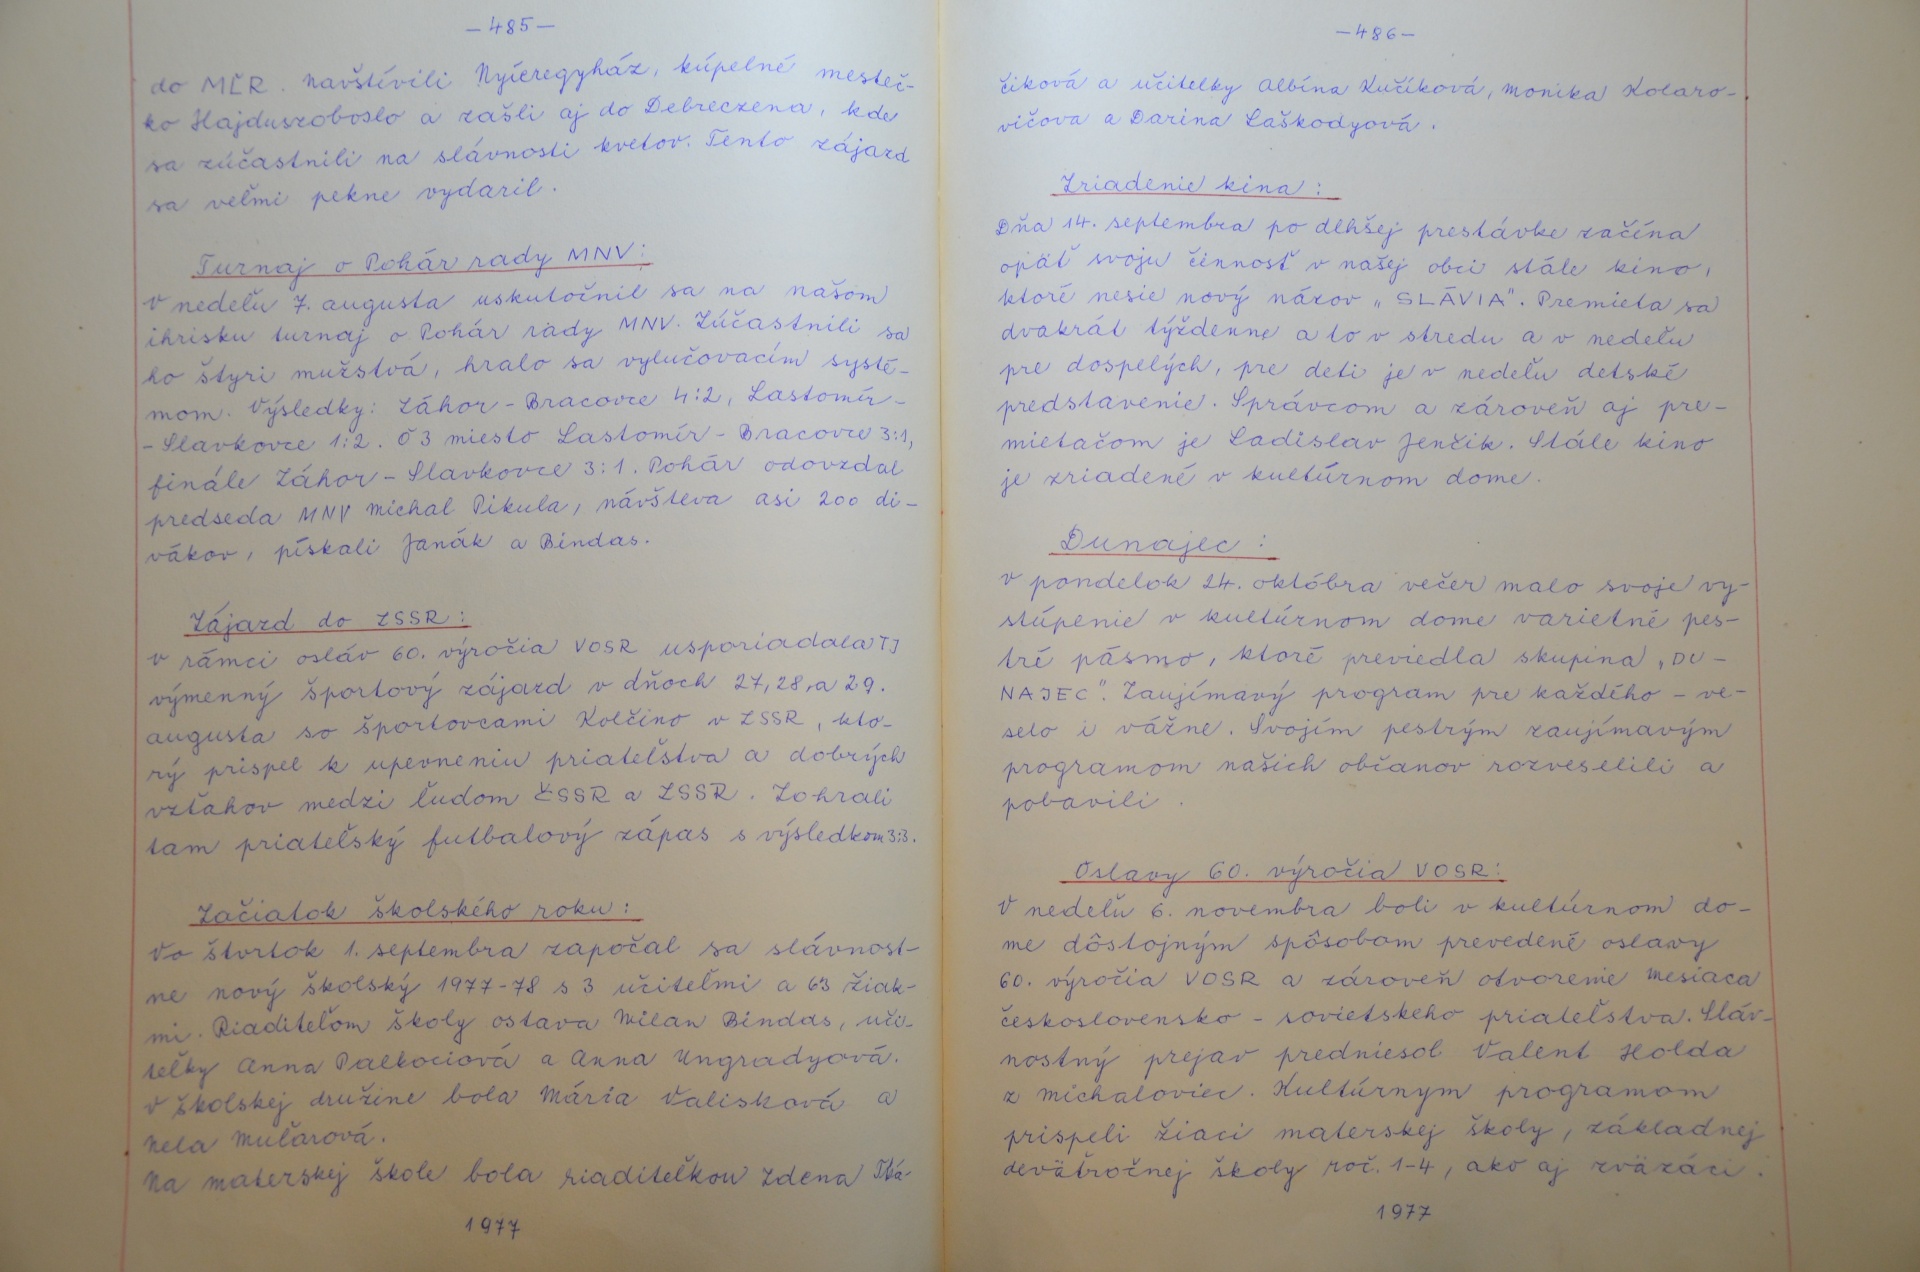 –485–
do MĽR. Navštívili Nyíregyház, kúpelné musteč-
ko Hajduszoboslo a zašli aj do Debreczena, kde
sa zúčastnili na slávnosti kvetov. Tento zájazd
sa veľmi pekne vydaril.
Turnaj o Pohár rady MNV:
V nedeľu 7. augusta uskutočnil sa na našom
ihrisku turnaj o Pohár rady MNV. Zúčastnili sa
ho štyri mužstvá, hralo sa vylučovacím systé-
mom. Výsledky: Záhor – Bracovce 4:2, Lastomír–
– Slavkovce 1:2. O 3 miesto Lastomír – Bracovce 3:1,
finále Záhor – Slavkovce 3:1. Pohár odovzdal
predseda MNV Michal Pikula, návšteva asi 200 di-
vákov, pískali Janák a Bindas.
Zájazd do ZSSR:
V rámci osláv 60. výročia VOSR usporiadala TJ
výmenný športový zájazd v dňoch 27, 28, a 29.
augusta so športovcami Kolčino v ZSSR, kto-
rý prispel k upevneniu priateľstva a dobrých
vzťahov medzi ľudom ČSSR a ZSSR. Zohrali
tam priateľský futbalový zápas s výsledkom 3:3.
Začiatok školského roku:
Vo štvrtok 1. septembra započal sa slávnost-
ne nový školský 1977-78 s 3 učiteľmi a 63 žiak-
mi. Riaditeľom školy ostava Milan Bindas, uči-
teľky Anna Palkociová a Anna Ungradyová.
V školskej družine bola Mária Valisková a
Nela Muľarová.
Na materskej škole bola riaditeľkou Zdena Tká-
1977
–486–
čiková a učitelky Albína Kučíková, Monika Kolaro-
vičova a Darina Laškodyová.
Zriadenie kina:
Dňa 14. septembra po dlhšej prestávke začína
opäť svoju činnosť v našej obci stále kino,
ktoré nesie nový názov „SLÁVIA“. Premieta sa
dvakrát týždenne a to v stredu a v nedeľu
pre dospelých, pre deti je v nedeľu detské
predstavenie. Správcom a zároveň aj pre-
mietačom je Ladislav Jenčik. Stále kino
je zriadené v kultúrnom dome.
Dunajec:
V pondelok 24. októbra večer malo svoje vy-
stúpenie v kultúrnom dome varietné pes-
tré pásmo, ktoré previedla skupina „DU-
NAJEC“. Zaujímavý program pre každého – ve-
selo i vážne. Svojím pestrým zaujímavým
programom našich občanov rozveselili a
pobavili.
Oslavy 60. výročia VOSR:
V nedeľu 6. novembra boli v kultúrnom do-
me dôstojným spôsobom prevedené oslavy
60. výročia VOSR a zároveň otvorenie Mesiaca
československo – sovietskeho priateľstva. Sláv-
nostný prejav predniesol Valent Holda
z Michaloviec. Kultúrnym programom
prispeli žiaci materskej školy, základnej
deväťročnej školy roč. 1-4, ako aj zväzáci.
1977